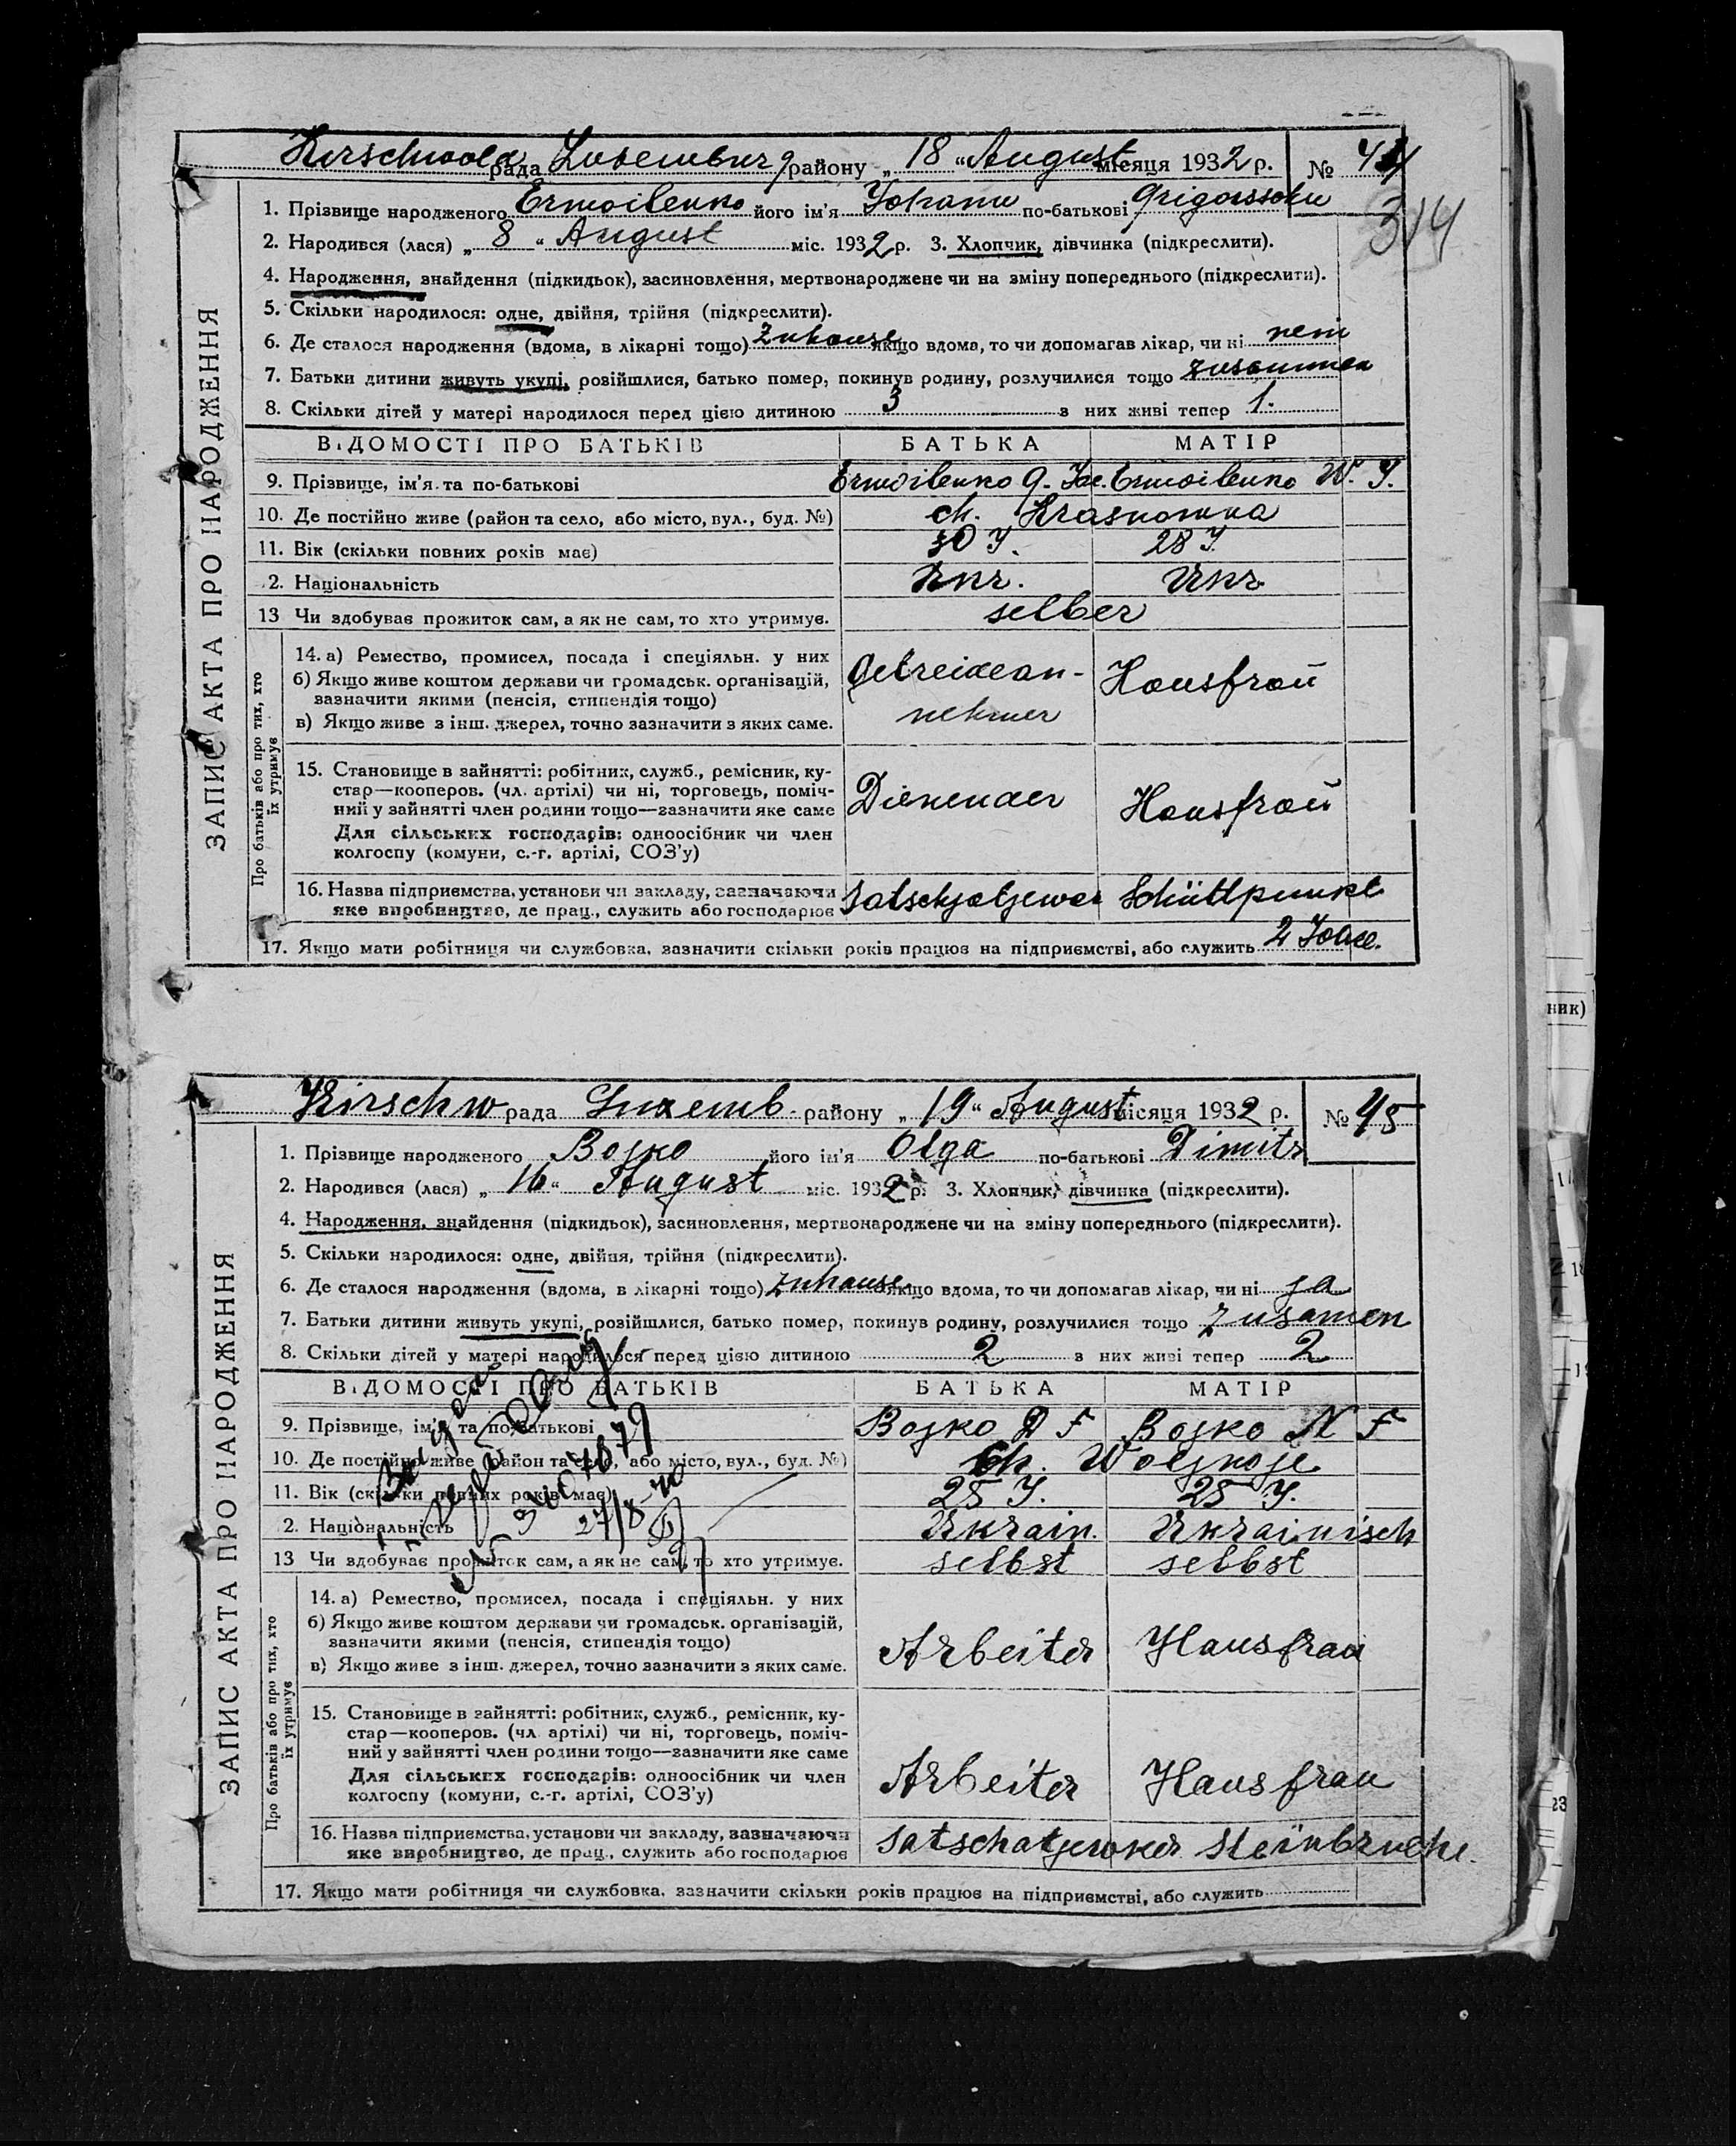 Kirschwald рада Luxemburg району „ 18 “ August місяця 1932 р. № 44
314
ЗАПИС АКТА ПРО НАРОДЖЕННЯ
1. Прізвище народженого Ermoilenko його ім'я Johann по-батькові Grigorssohn
2. Народився (лася) „ 8 “ August міс. 1932 р. 3. Хлопчик, дівчинка (підкреслити).
4. Народження, знайдення (підкидьок), засиновлення, мертвонароджене чи на зміну попереднього (підкреслити).
5. Скільки народилося: одне, двійня, трійня (підкреслити).
6. Де сталося народження (вдома, в лікарні тощо) Zuhause якщо вдома, то чи допомагав лікар, чи ні nein
7. Батьки дитини живуть укупі, розійшлися, батько помер, покинув родину, розлучилися тощо zusammen
8. Скільки дітей у матері народилося перед цією дитиною 3 з них живі тепер 1.
ВІДОМОСТІ ПРО БАТЬКІВ БАТЬКА МАТІР
9. Прізвище, ім'я та по-батькові Ermoilenko G. Jac. Ermoilenko W. J.
10. Де постійно живе (район та село, або місто, вул., буд. №) ch. Krasnowka
11. Вік (скільки повних років має) 30 J. 28 J.
2. Національність Ukr. Ukr
13 Чи здобуває прожиток сам, а як не сам, то хто утримує. selber
Про батьків або про тих, хто їх утримує
14. а) Ремество, промисел, посада і спеціяльн. у них
б) Якщо живе коштом держави чи громадськ. організацій, зазначити якими (пенсія, стипендія тощо)
в) Якщо живе з інш. джерел, точно зазначити з яких саме.
Getreidean-
nehmer
Hausfrau
15. Становище в зайнятті: робітник, служб., ремісник, ку-
стар—кооперов. (чл. артілі) чи ні, торговець, поміч-
ний у зайнятті член родини тощо—зазначити яке саме
Для сільських господарів: одноосібник чи член
колгоспу (комуни, с.-г. артілі, СОЗ'у)
Dienender Hausfrau
16. Назва підприємства, установи чи закладу, зазначаючи
яке виробництво, де прац., служить або господарює
Schüttpunkt
17. Якщо мати робітниця чи службовка, зазначити скільки років працює на підприємстві, або служить 2
Kirschw рада Luxemb. району „ 19 “ August місяця 1932 р. № 45
ЗАПИС АКТА ПРО НАРОДЖЕННЯ
1. Прізвище народженого Bojko його ім'я Olga по-батькові Dimitr
2. Народився (лася) „ 16 “ August міс. 1932 р. 3. Хлопчик, дівчинка (підкреслити).
4. Народження, знайдення (підкидьок), засиновлення, мертвонароджене чи на зміну попереднього (підкреслити).
5. Скільки народилося: одне, двійня, трійня (підкреслити).
6. Де сталося народження (вдома, в лікарні тощо) Zuhause якщо вдома, то чи допомагав лікар, чи ні ja
7. Батьки дитини живуть укупі, розійшлися, батько помер, покинув родину, розлучилися тощо zusamen
8. Скільки дітей у матері народилося перед цією дитиною 2 з них живі тепер 2
ВІДОМОСТІ ПРО БАТЬКІВ БАТЬКА МАТІР
9. Прізвище, ім'я та по-батькові Bojko D F Bojko N F
10. Де постійно живе (район та село, або місто, вул., буд. №) ch. Woljnoje
11. Вік (скільки повних років має) 25 J. 25 J.
2. Національність Ukrain. Ukrainisch
13 Чи здобуває прожиток сам, а як не сам, то хто утримує. selbst selbst
Про батьків або про тих, хто їх утримує
14. а) Ремество, промисел, посада і спеціяльн. у них
б) Якщо живе коштом держави чи громадськ. організацій, зазначити якими (пенсія, стипендія тощо)
в) Якщо живе з інш. джерел, точно зазначити з яких саме.
Arbeiter Hausfrau
15. Становище в зайнятті: робітник, служб., ремісник, ку-
стар—кооперов. (чл. артілі) чи ні, торговець, поміч-
ний у зайнятті член родини тощо—зазначити яке саме
Для сільських господарів: одноосібник чи член
колгоспу (комуни, с.-г. артілі, СОЗ'у)
Arbeiter Hausfrau
16. Назва підприємства, установи чи закладу, зазначаючи
яке виробництво, де прац., служить або господарює
Satschatjewker Steinbruche.
17. Якщо мати робітниця чи службовка, зазначити скільки років працює на підприємстві, або служить
ник)